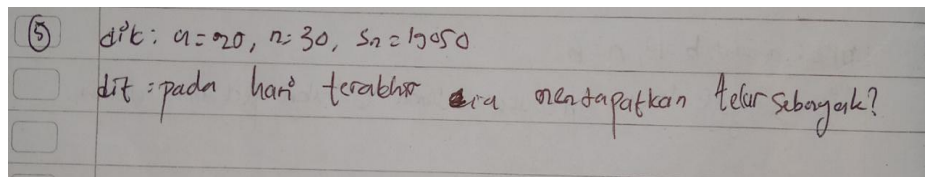 ⑤ dik: a=20, n=30, Sn=19050
dit: pada hari terakhir dia mendapatkan telur sebanyak?